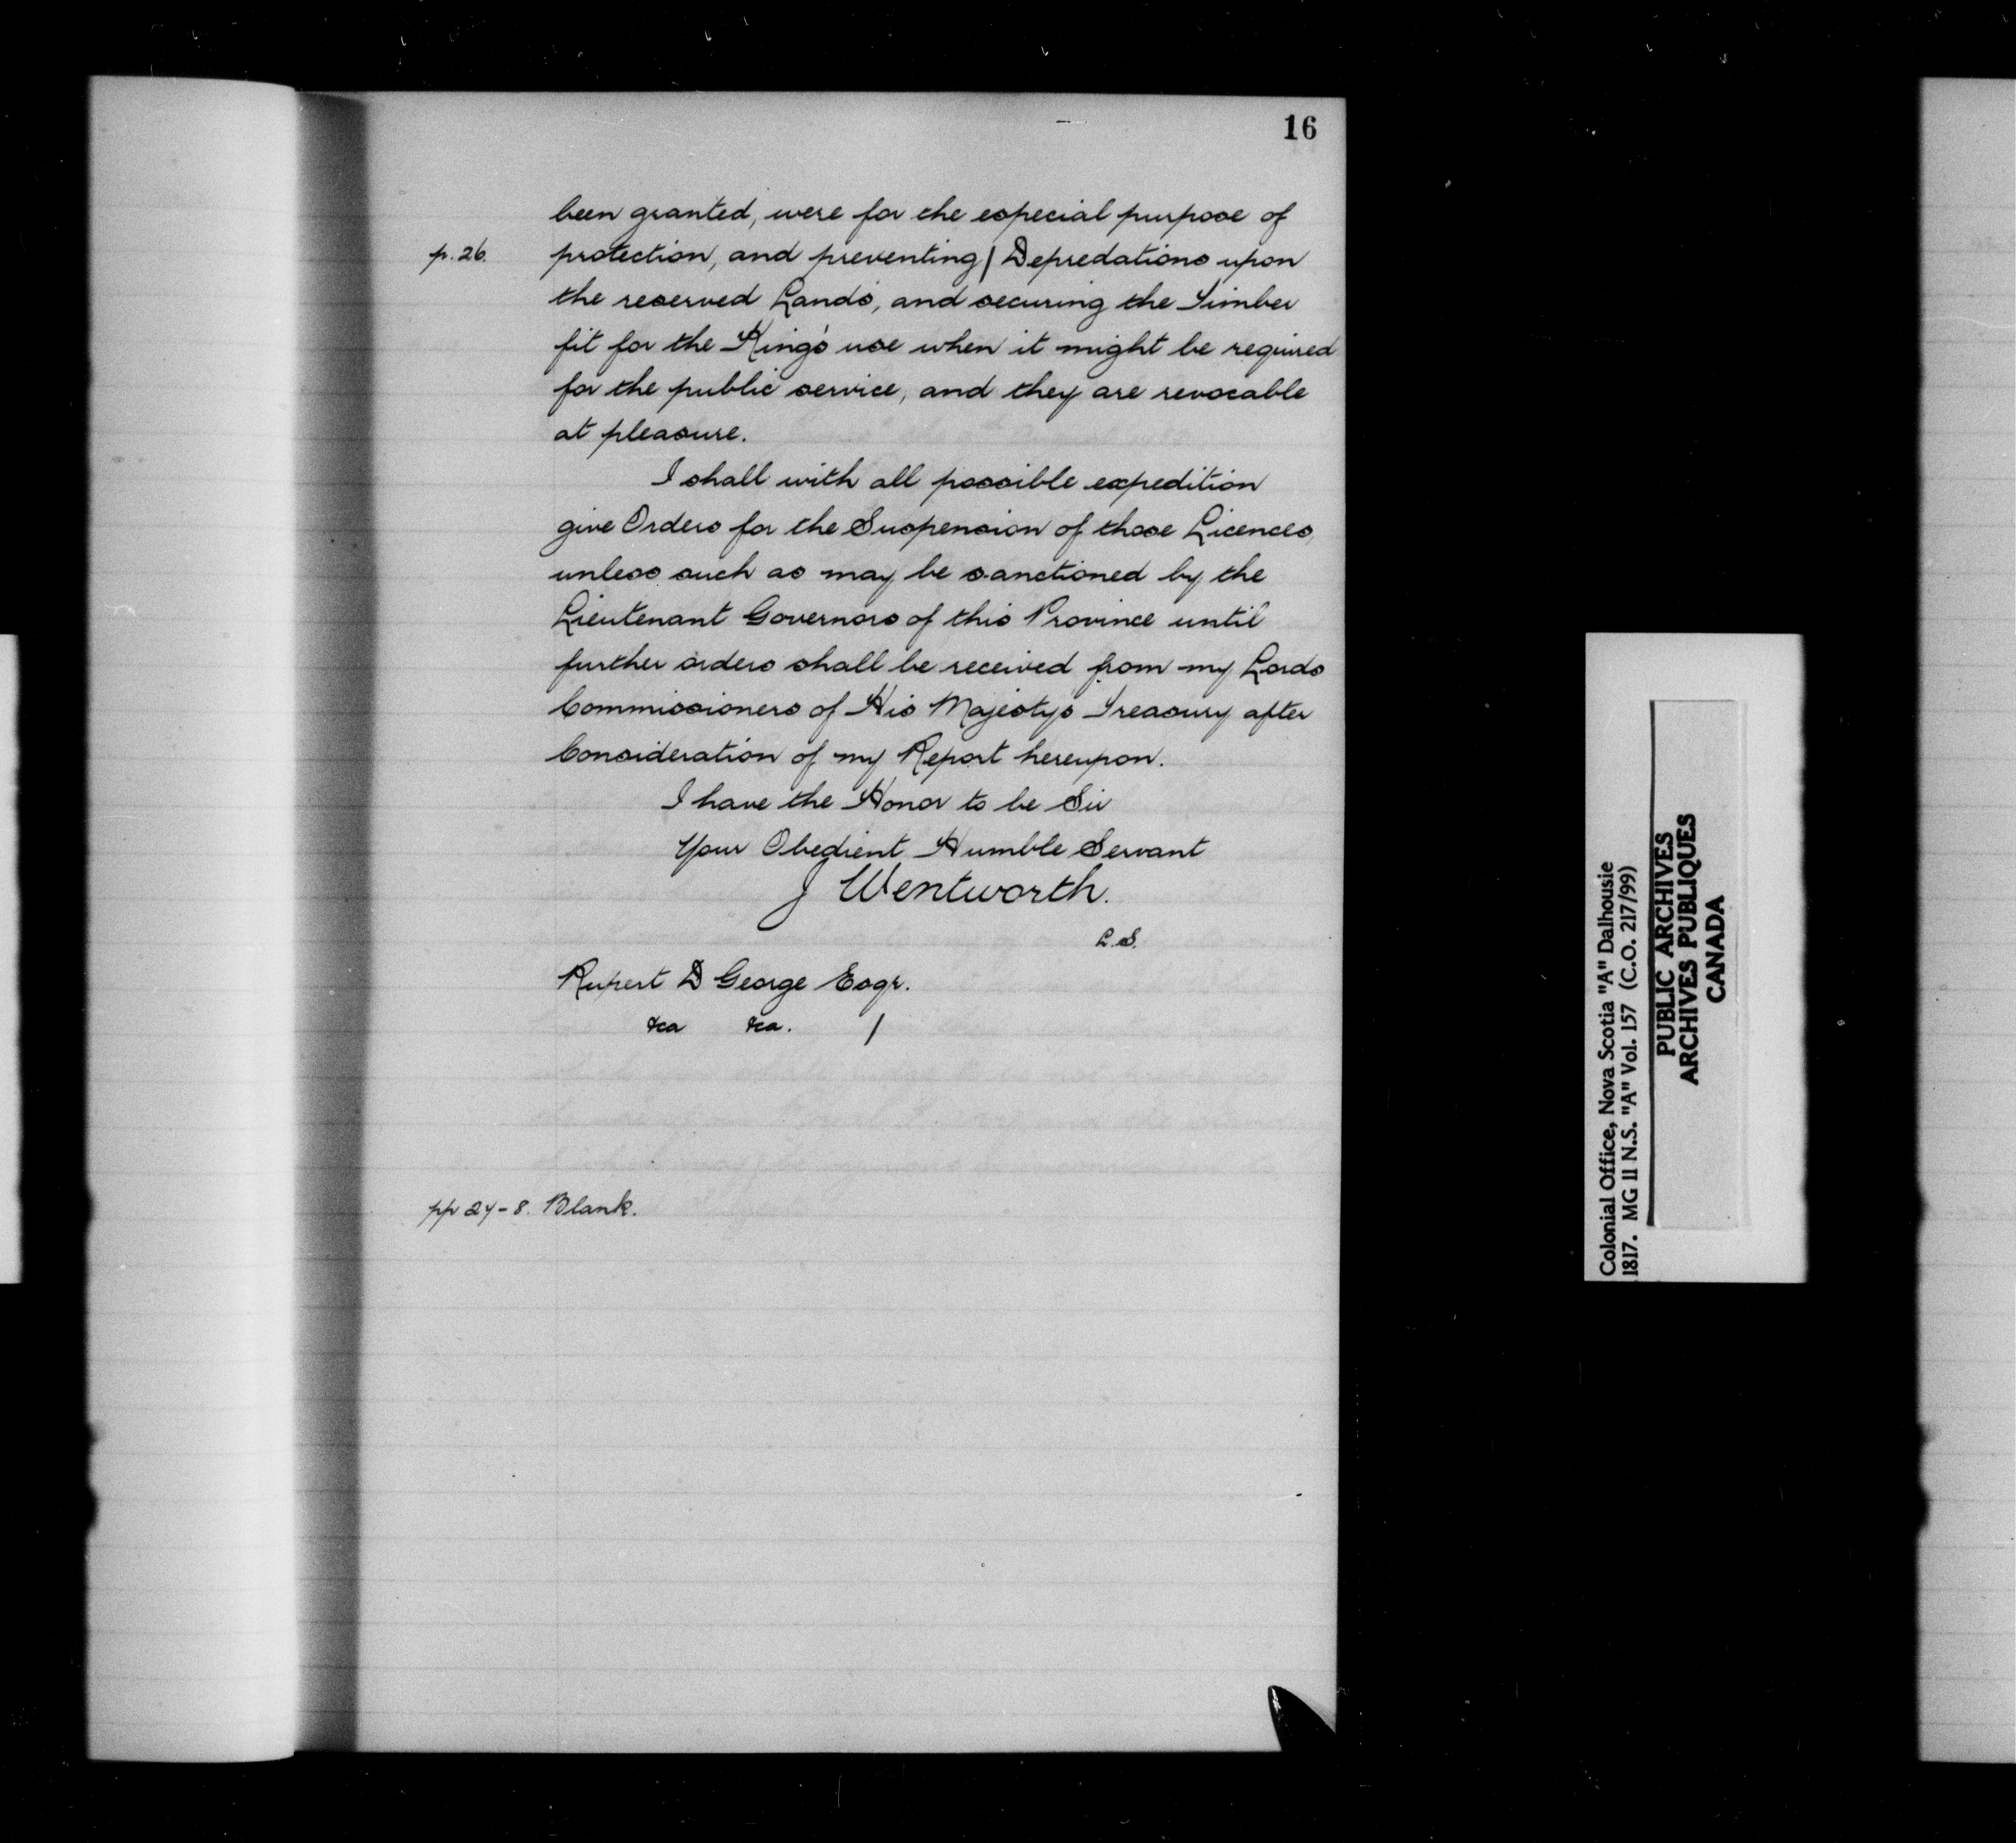 16
been granted, were for the especial purpose of
p. 26. protection, and preventing / Depredations upon
the reserved Lands, and securing the Timber
fit for the King's use when it might be required
for the public service, and they are revocable
at pleasure.
I shall with all possible expedition
give Orders for the Suspension of those Licences,
unless such as may be sanctioned by the
Lieutenant Governors of this Province until
further orders shall be received from my Lords
Commissioners of His Majesty's Treasury after
Consideration of my Report hereupon.
I have the Honor to be Sir
Your Obedient Humble Servant
J Wentworth.
L.S.
Rupert D George Esqr.
&ca &ca. /
pp 27-8. Blank.
Colonial Office, Nova Scotia "A" Dalhousie
1817. MG 11 N.S. "A" Vol. 157 (C.O. 217/99)
PUBLIC ARCHIVES
ARCHIVES PUBLIQUES
CANADA